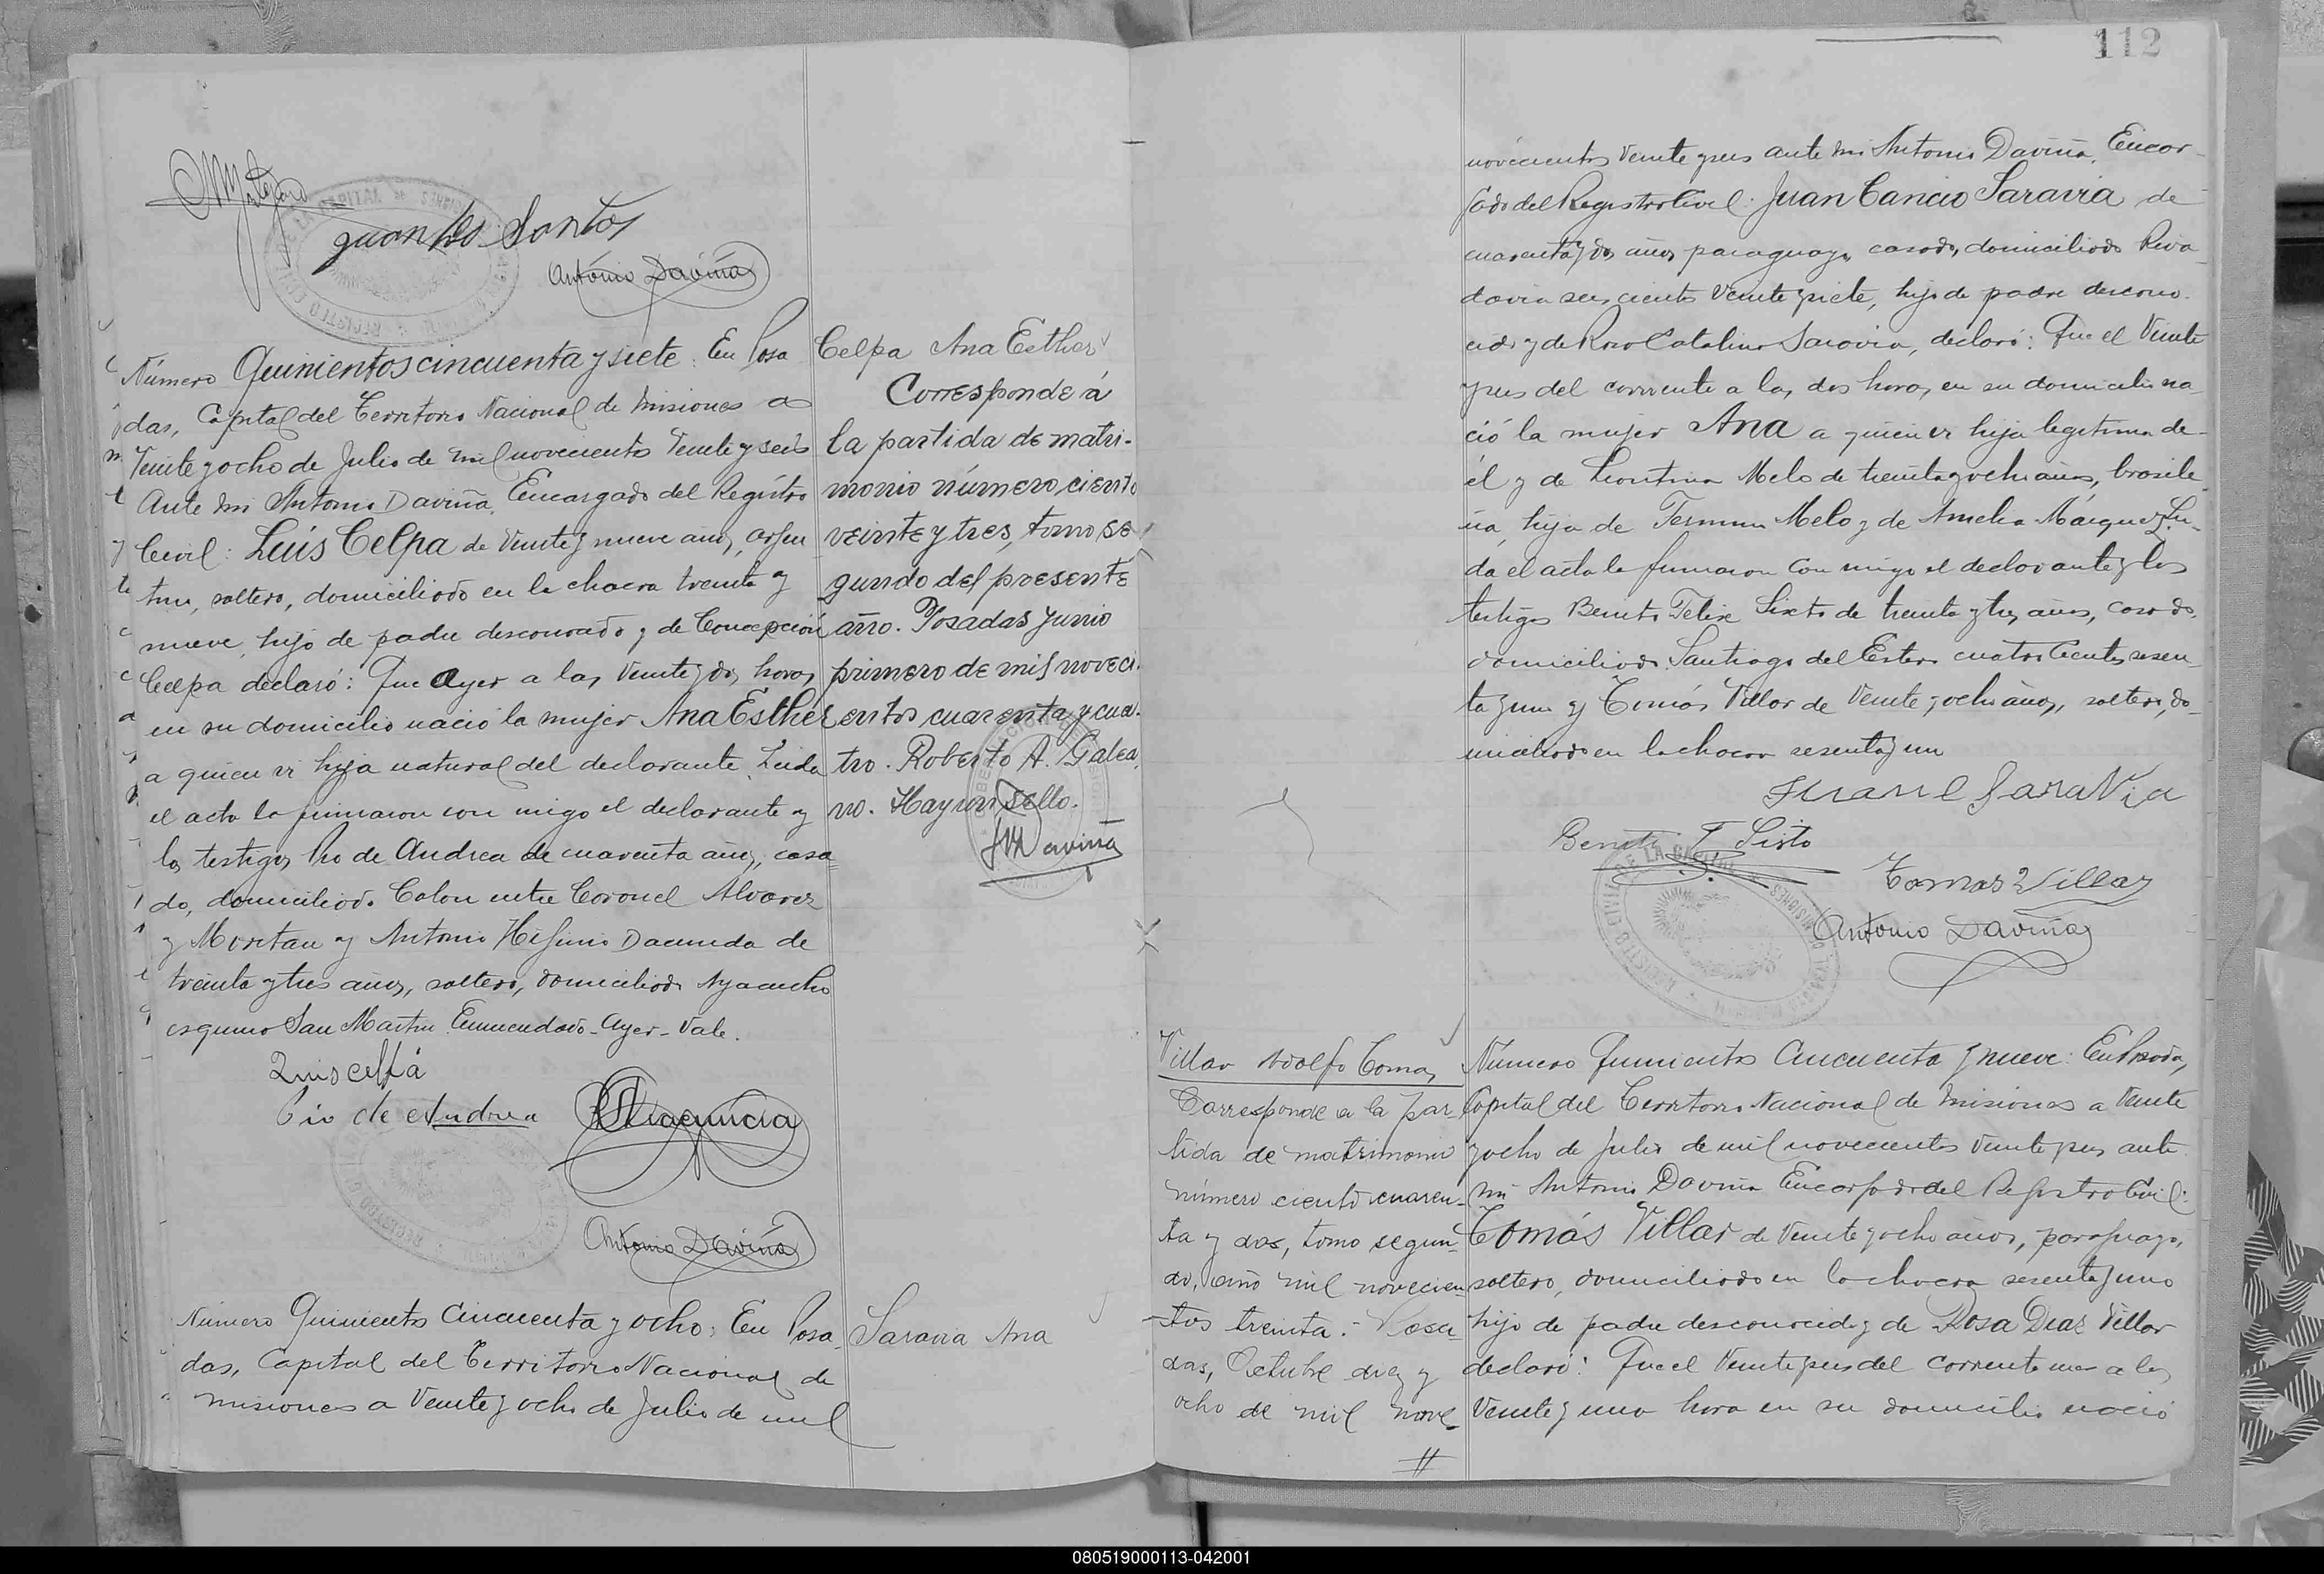 Juan D. Santos
Antonio Daviña
Número Quinientos cincuenta y siete: En Posa
das, Capital del Territorio Nacional de Misiones a
Veinte y ocho de Julio de mil novecientos Veinte y seis
Ante mi Antonio Daviña, Encargado del Registro
Civil: Luis Celpa de Veinte y nueve años, argen
tino, soltero, domiciliado en la chacra treinta y
nueve, hijo de padre desconocido y de Concepción
Celpa declaró: Que Ayer a las Veinte y dos horas
en su domicilio nació la mujer Ana Esther
a quien vi hija natural del declarante. Leida
el acta la firmaron con migo el declarante y
los testigos Pio de Andrea de cuarenta años, casa
do, domiciliado Colon entre Coronel Alvarez
y Moritan y Antonio Higinio Dacunda de
treinta y tres años, soltero, domiciliado Ayacucho
esquina San Martin. Enmendado-Ayer-Vale.
Luis celpa
Pio de Andrea
Antonio Daviña
Número Quinientos Cincuenta y ocho: En Posa
das, Capital del Territorio Nacional de
Misiones a Veinte y ocho de Julio de mil
Celpa Ana Esther
Corresponde á
la partida de matri-
monio número ciento
veinte y tres, tomo se
gundo del presente
año. Posadas Junio
primero de mil noveci-
entos cuarenta y cua-
tro. Roberto A. Galea
no. Hay un sello.
Daviña
Saravia Ana
112
novecientos Veinte y seis ante mi Antonio Daviña, Encar-
gado del Registro Civil: Juan Cancio Saravia de
cuarenta y dos años, paraguayo, casado, domiciliado Riva
davia seiscientos Veinte y siete, hijo de padre descono-
cido y de Rosa Catalina Saravia, declaró: Que el Veinte
y seis del corriente a las dos horas, en su domicilio na-
ció la mujer Ana a quien vi hija legitima de
él y de Leontina Melo de treinta y ocho años, brasile
ña, hija de Melo y de Amelia Márquez. Lei-
da el acta la firmaron con migo el declarante y los
testigos Benito Felix Sixto de treinta y tres años, casado,
domiciliado Santiago del Estero cuatrocientos sesen-
ta y uno y Tomás Villar de Veinte y ocho años, soltero, do-
miciliado en la chacra sesenta y uno
Juan C Saravia
Benito F. Sisto
Tomas Villar
Antonio Daviña
Villar Adolfo Tomas
Corresponde a la par
tida de matrimonio
número ciento cuaren-
ta y dos, tomo segun-
do, año mil novecien
tos treinta.- Posa
das, Octubre diez y
ocho de mil nove
//
Número Quinientos Cincuenta y nueve: En Posadas,
Capital del Territorio Nacional de Misiones a Veinte
y ocho de Julio de mil novecientos Veinte y seis ante
mi Antonio Daviña Encargado del Registro Civil:
Tomás Villar de Veinte y ocho años, paraguayo,
soltero, domiciliado en la chacra sesenta y uno
hijo de padre desconocido y de Rosa Diaz Villar
declaró: Que el Veinte y seis del corriente mes a las
Veinte y una hora en su domicilio nació
080519000113-042001